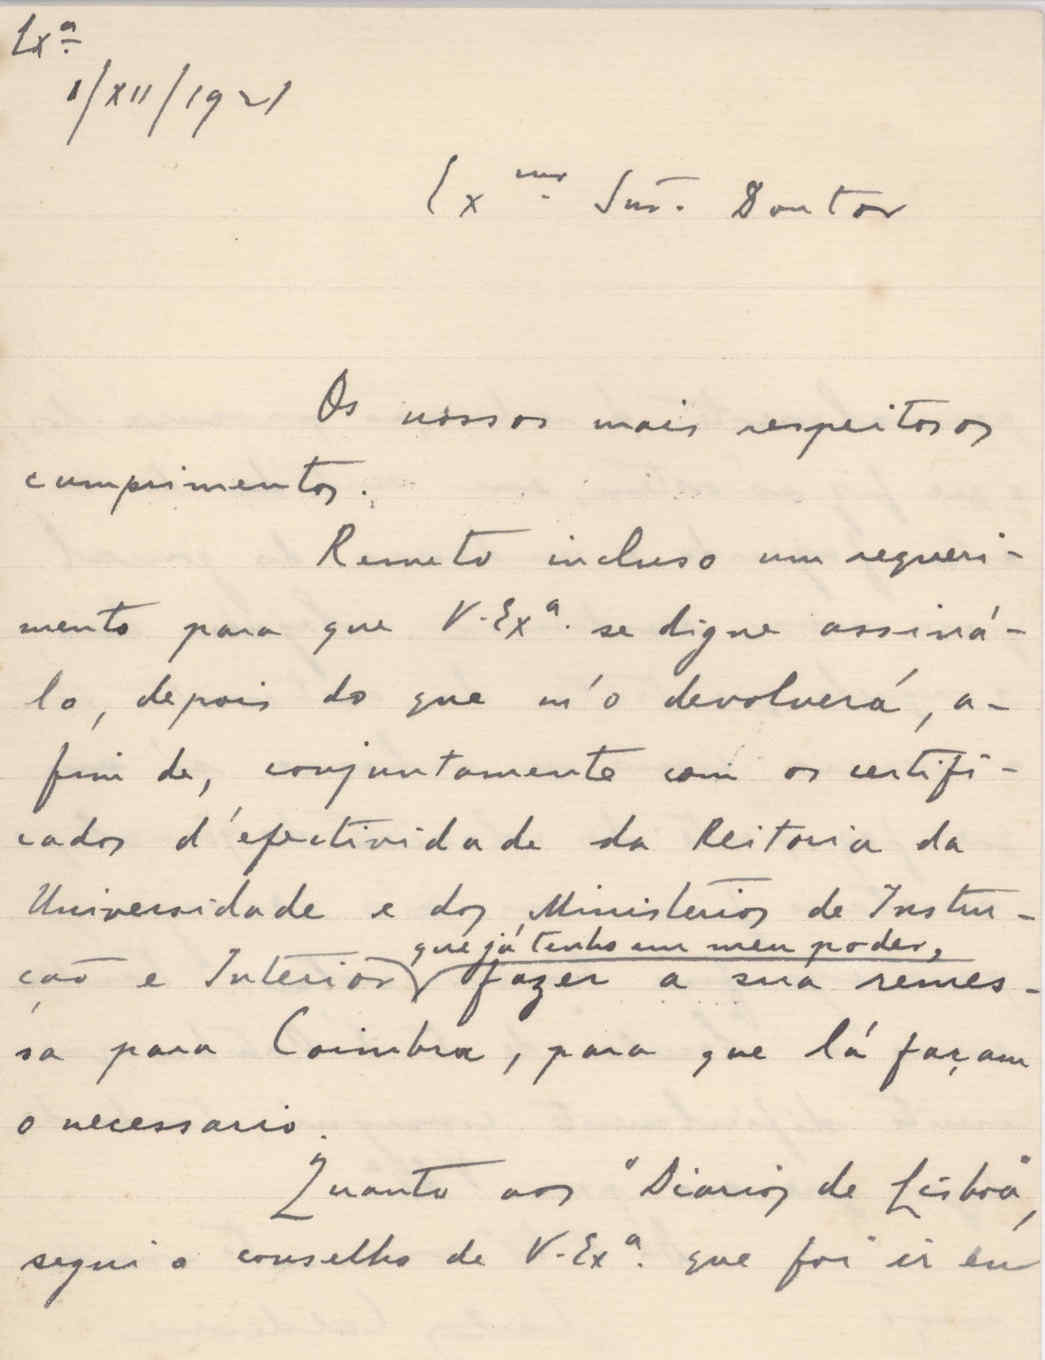 Lxª
1/XII/1921
Exmo. Snr. Doutor
Os nossos mais respeitosos
cumprimentos.
Remeto incluso um requeri-
mento para que V. Exª. se digne assiná-
lo, depois do que m'o devolverá, a-
fim de, conjuntamente com os certifi-
cados d'efectividade da Reitoria da
Universidade e dos Ministerios de Instru-
que já tenho em meu poder,
ção e Interior fazer a sua remes-
sa para Coimbra, para que lá façam
o necessario.
Quanto aos "Diarios de Lisboa",
segui o conselho de V. Exª. que foi ir eu